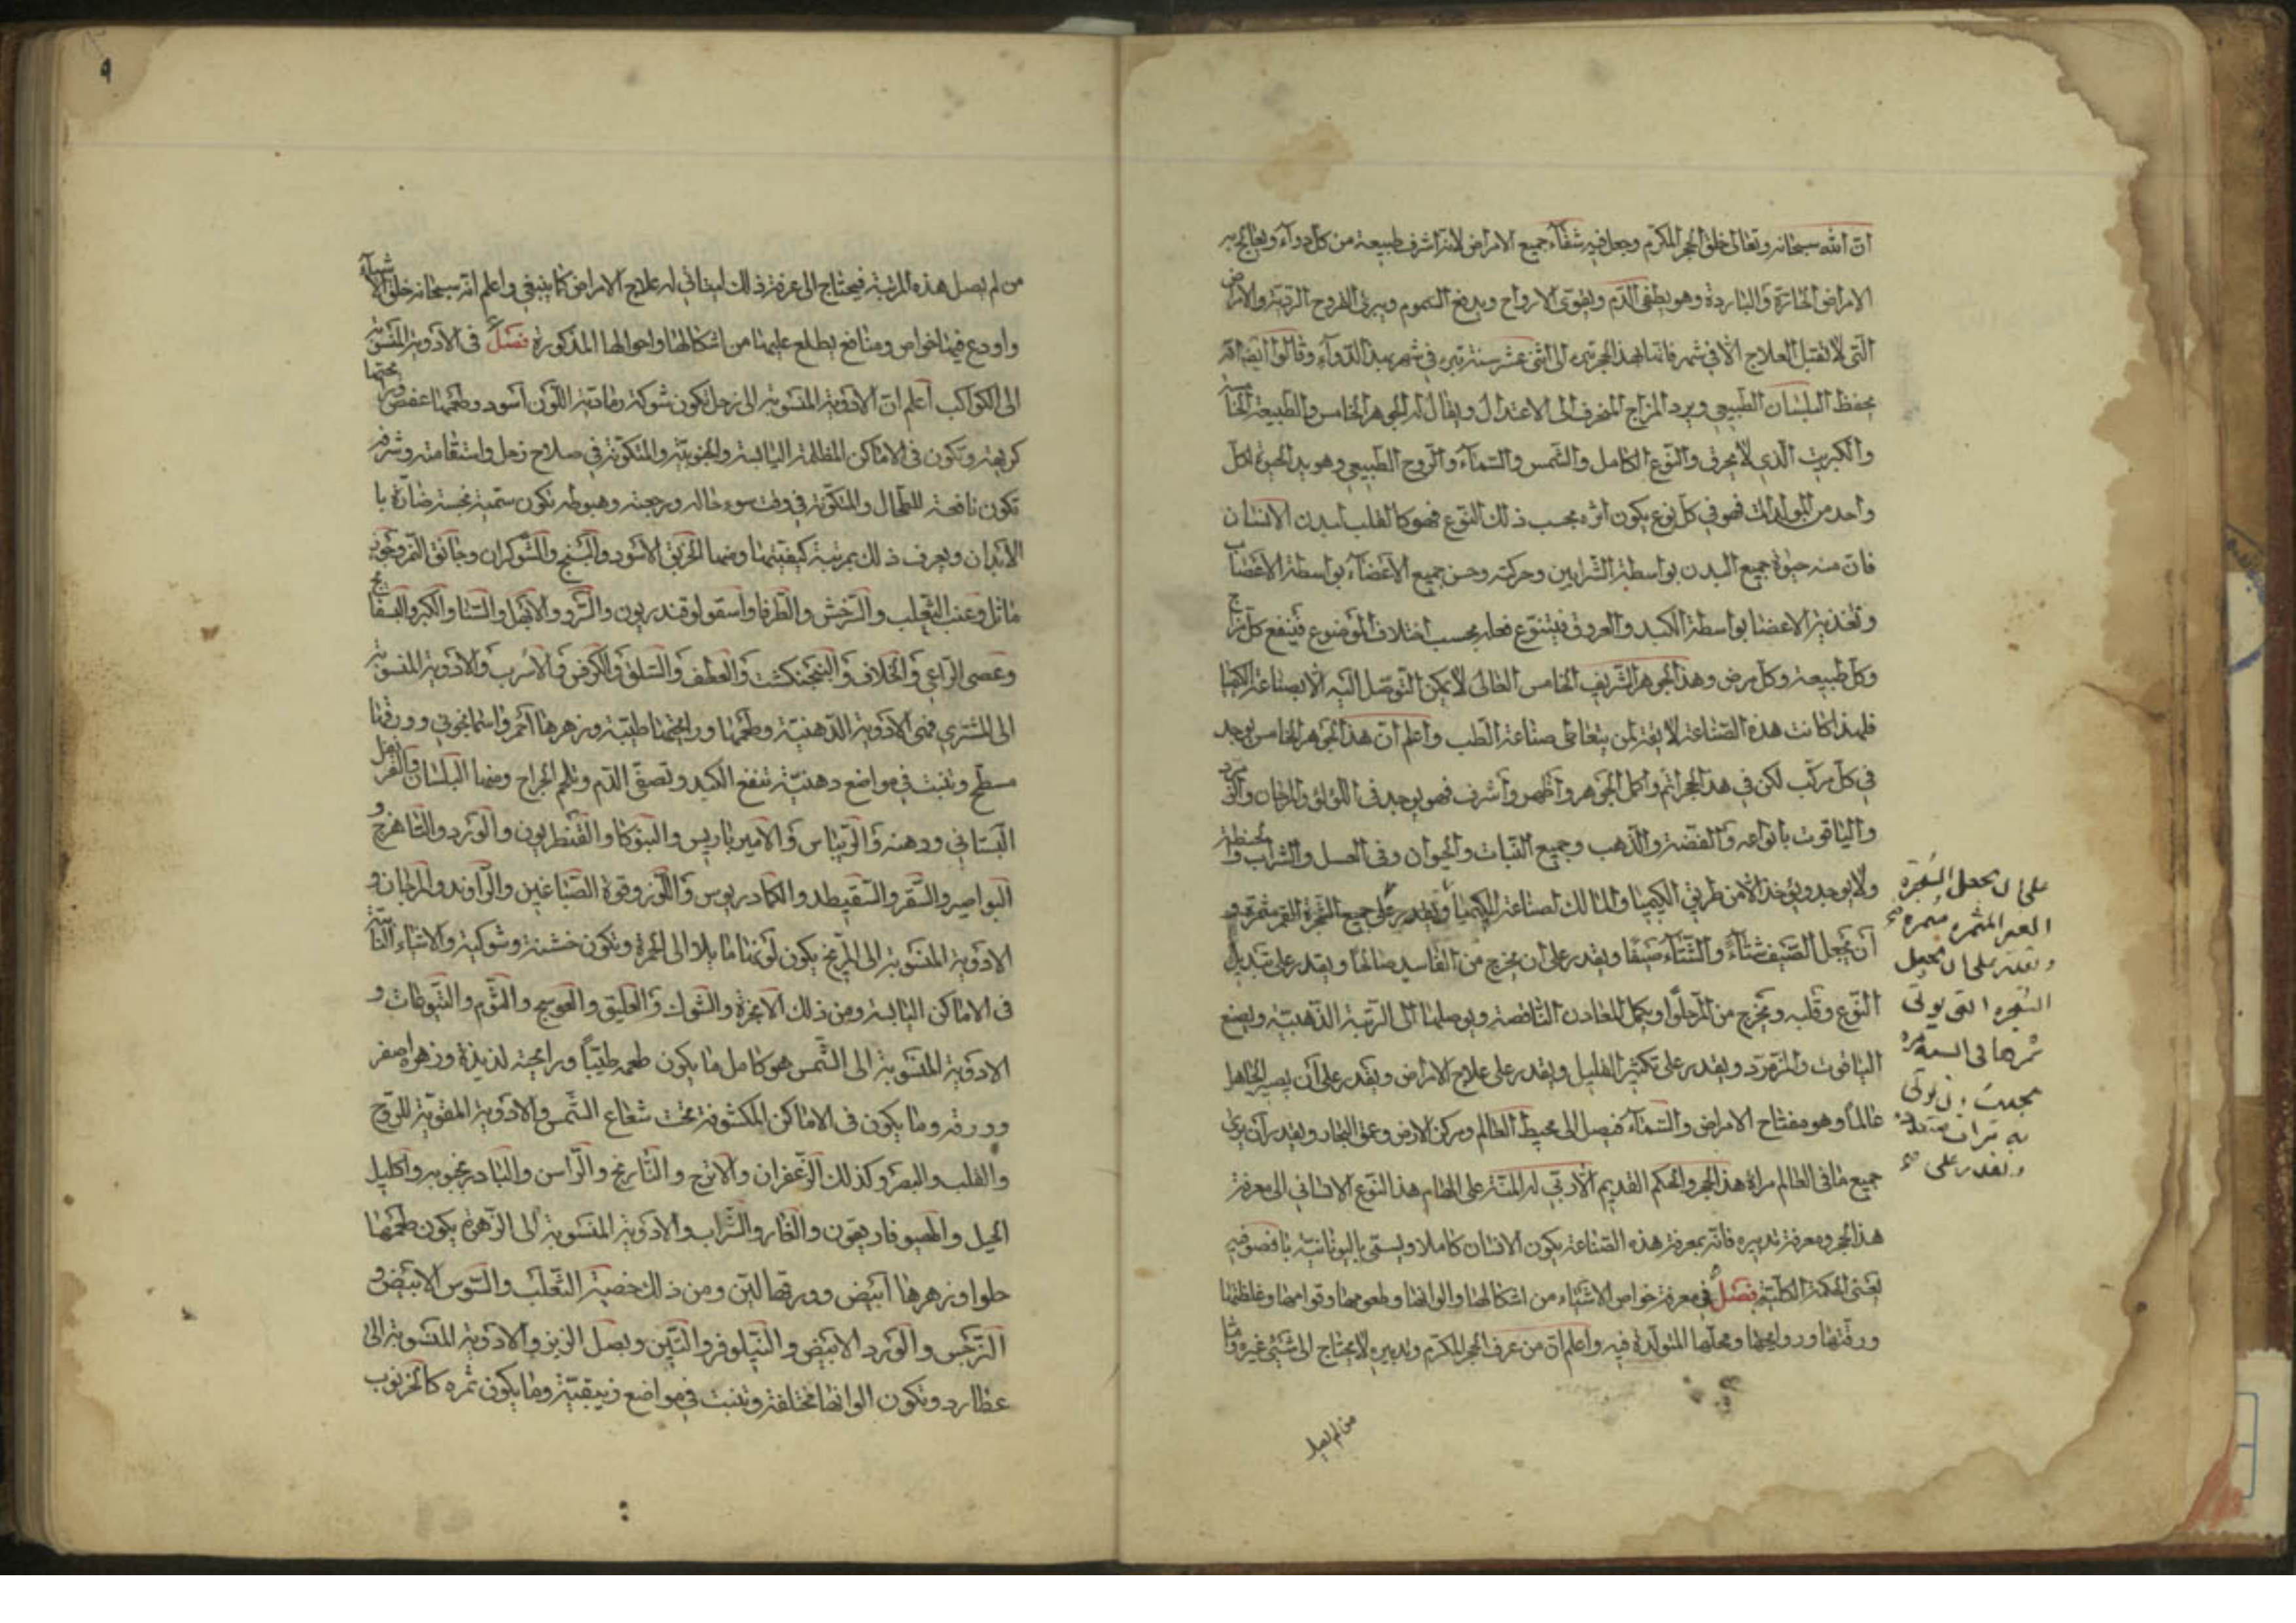 ان الله سبحانه وتعالى خلق الحجر المكرم وجعل فيه شفآء جميع الامراض لانه اشرف طبيعة من كل دوآء ويعالج به
الامراض الحارة والباردة وهو يطفى الدم ويقوى الارواح ويدفع السموم ويبرئ القروح الردية والامراض
التى لا تقبل العلاج الا فى شهر فانها بهذا الحجر تبرء الى اثنى عشر سنة تبرء فى شهر بهذا الدوآء وقالوا ايضا انه
يحفظ البلسان الطبيعى ويرد المزاج المنحرف الى الاعتدال ويقال له الجوهر الخامس والطبيعة الخامسة
والكبريت الذى لا يحرق والنوع الكامل والشمس والسمآء والروح الطبيعى وهو يد الحيوة لكل
واحد من المواليد فهو فى كل نوع يكون اثره بحسب ذلك النوع فهو كالقلب لبدن الانسان
فان منه حيوة جميع البدن بواسطة الشرايين وحركته وحس جميع الاعضآء بواسطة الاعصاب
وتغذية الاعضا بواسطة الكبد والعروق فيتنوع فعله بحسب اختلاف الموضوع فينفع كل مزاج
وكل طبيعة وكل مرض وهذا الجوهر الشريف الخامس العالى لا يمكن التوصل اليه الا بصناعة الكيميا
فلهذا كانت هذه الصناعة لازمة لمن يتعاطى صناعة الطب واعلم ان هذا الجوهر الخامس يوجد
فى كل مركب لكن فى هذا الحجر اتم واكمل الجوهر واظهر واشرف فهو يوجد فى اللؤلؤ والمرجان والزمرد
والياقوت بانواعه والفضة والذهب وجميع النبات والحيوان وفى العسل والشراب والحنطة
ولا يوجد ويؤخذ الا من طريق الكيميا والمالك لصناعة الكيميا يقدر على جميع الشجرة الغير مثمرة و
ان يجعل الصيف شتآء والشتآء صيفا ويقدر على ان يخرج من الفاسد صالحا ويقدر على تبديل
النوع وقلبه ويخرج من المر حلوا ويكمل المعادن الناقصة ويوصلها الى الرتبة الذهبية ويصنع
الياقوت والزمرد ويقدر على تكثير القليل ويقدر على علاج الامراض ويقدر على ان يصير الجاهل
عالما وهو مفتاح الامراض والسمآء فيصل الى محيط العالم ومركز الارض وعمق البحار ويقدر ان يرى
جميع ما فى العالم مراة هذا الحجر والحكم القديم الازلى له المنة على الهام هذا النوع الانسانى الى معرفة
هذا الحجر ومعرفة تدبيره فانه بمعرفة هذه الصناعة يكون الانسان كاملا ويسمى باليونانية
يعنى الحكمة الكلية فصل فى معرفة خواص الاشياء من اشكالها والوانها وطعومها وقوامها وغلظها
ورقتها وروايحها ومحلها المتولدة فيه واعلم ان من عرف الحجر المكرم وتدبيره لا يحتاج الى شىء غيره واما
من لم يصل
على ان يجعل الشجرة
الغير المثمرة مثمرة
ويقدر على ان يجعل
الشجرة التى يوتى
ثمرها فى السنة مرة
ويقدر على
٩
من لم يصل هذه المرتبة فيحتاج الى معرفة ذلك ليتأتى له علاج الامراض كما ينبغى واعلم انه سبحانه خلق الاشيآء
واودع فيها خواص ومنافع يطلع عليها من اشكالها واحوالها المذكورة فصل فى الادوية المنسوبة
الى الكواكب اعلم ان الادوية المنسوبة الى زحل تكون شوكة رمادية اللون اسود وطعمها عفص وريحتها
كريهة وتكون فى الاماكن المظلمة اليابسة والجنوبية والمتكونة فى صلاح زحل واستقامته وشرفه
تكون نافعة للطحال والمتكونة فى وقت سوء حاله ورجعته وهبوطه تكون سمية نحسة ضارة با
لابدان ويعرف ذلك بمرتبة كيفيتها ومنها الخربق الاسود والبنج والشوكران وخانق النمر وجوز
ماثل وعنب الثعلب والسرخس والطرفا واسقولوقندريون والسرو والابهل والسنا والكبر والبسفايج
وعصى الراعى والخلاف والبنجنكشت والقطف والسلق والكرفس والاسرب والادوية المنسوبة
الى المشترى فهى الادوية الدهنية وطعمها ورايحتها طيبة وزهرها احمر واسمانجونى وورقها
مسطح وتنبت فى مواضع دهنية تنفع الكبد وتصفى الدم وتلحم الجراح ومنها البلسان والقرنفل
البستانى ودهنه والريباس والاميرباريس والبنوكا والقنطريون والورد والشاهترج و
البواصير والسقر والسقيطد والكمادريوس واللوز وفوة الصباغين والراوند والمرجان و
الادوية المنسوبة الى المريخ يكون لونها مايلا الى الحمرة وتكون خشنة وشوكية والاشياء النابتة
فى الاماكن اليابسة ومن ذلك الانجرة والشوك والعليق والعوسج والثوم واليتوعات و
الادوية المنسوبة الى الشمس هو كامل ما يكون طعمه طيبا ورايحته لذيذة وزهره اصفر
وورقه وما يكون فى الاماكن المكشوفة تحت شعاع الشمس والادوية المقوية للروح
والقلب والبصر وكذلك الزعفران والاترج والنارنج والراسن والبادرنجويه واكليل
الجبل والهيوفاريقون والغار والشراب والادوية المنسوبة الى الزهرة يكون طعمها
حلوا وزهرها ابيض وورقها لين ومن ذلك خصية الثعلب والسوس الابيض و
النرجس والورد الابيض والنيلوفر والتين وبصل الزيز والادوية المنسوبة الى
عطارد وتكون الوانها مختلفة وتنبت فى مواضع زيبقية وما يكون ثمره كالخرنوب